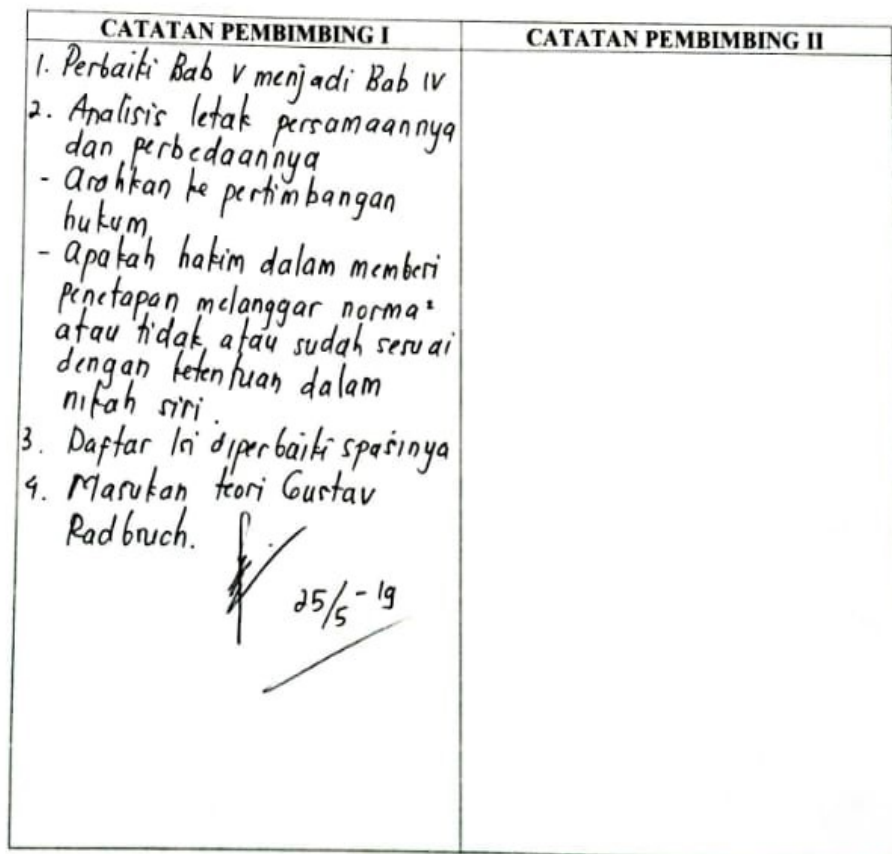 CATATAN PEMBIMBING I
CATATAN PEMBIMBING II
1. Perbaiki Bab V menjadi Bab IV
2. Analisis letak persamaannya
dan perbedaannya
- Arahkan ke pertimbangan
hukum
- Apakah hakim dalam memberi
penetapan melanggar norma²
atau tidak atau sudah sesuai
dengan ketentuan dalam
nikah siri.
3. Daftar Isi diperbaiki spasinya
4. Masukan teori Gustav
Radbruch.
25/5 - 19